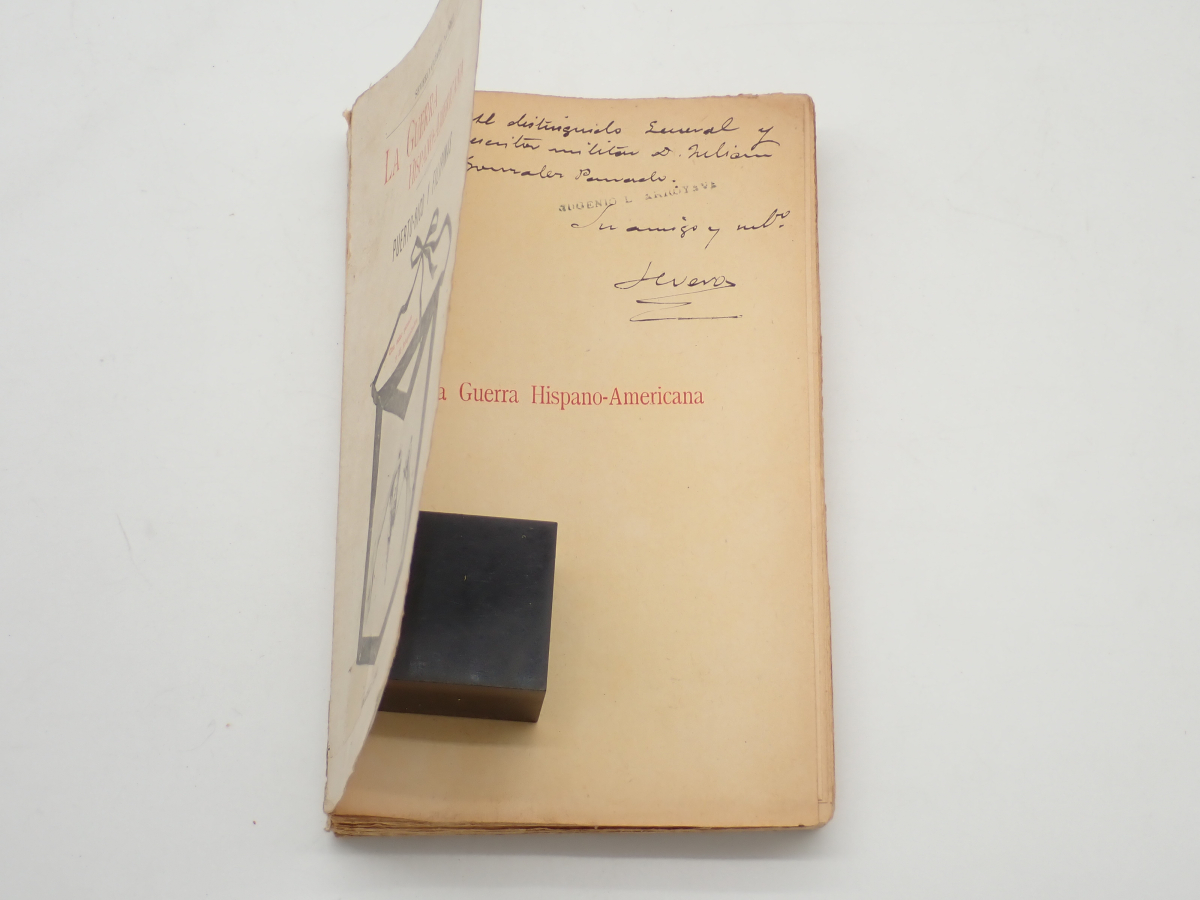 LA GUERRA
HISPANO-AMERICANA
PUERTO-RICO Y FILIPINAS
Al distinguido General y
escritor militar D. Julian
Gonzalez Parrado.
EUGENIO L ARROYAVE
Su amigo y
Severo
a Guerra Hispano-Americana